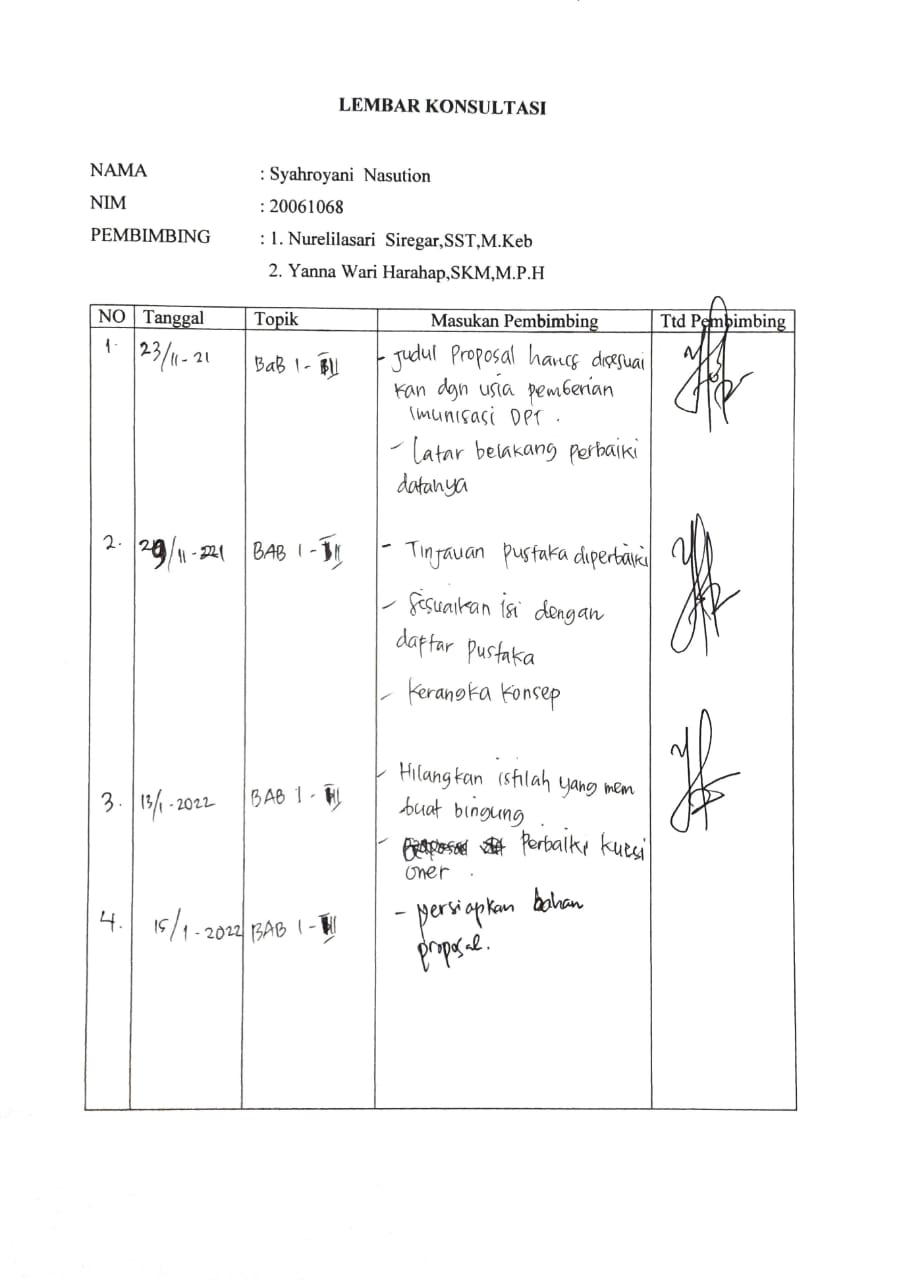 LEMBAR KONSULTASI
NAMA : Syahroyani Nasution
NIM : 20061068
PEMBIMBING : 1. Nurelilasari Siregar,SST,M.Keb
2. Yanna Wari Harahap,SKM,M.P.H
NO Tanggal Topik Masukan Pembimbing Ttd Pembimbing
1. 23/11-21 BaB 1 - III - Judul Proposal harus disesuai
kan dgn usia pemberian
imunisasi DPT.
- Latar belakang perbaiki
datanya
2. 29/11-2021 BAB 1 - III - Tinjauan pustaka diperbaiki
- Sesuaikan isi dengan
daftar Pustaka
- Kerangka Konsep
3. 13/1-2022 BAB 1 - III - Hilangkan istilah yang mem
buat bingung
- Perbaiki kuesi
oner.
4. 15/1-2022 BAB 1 - III - persiapkan bahan
proposal.